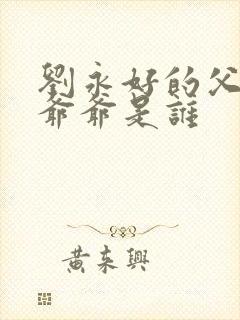 劉永好的父
爺爺是誰
黃東興